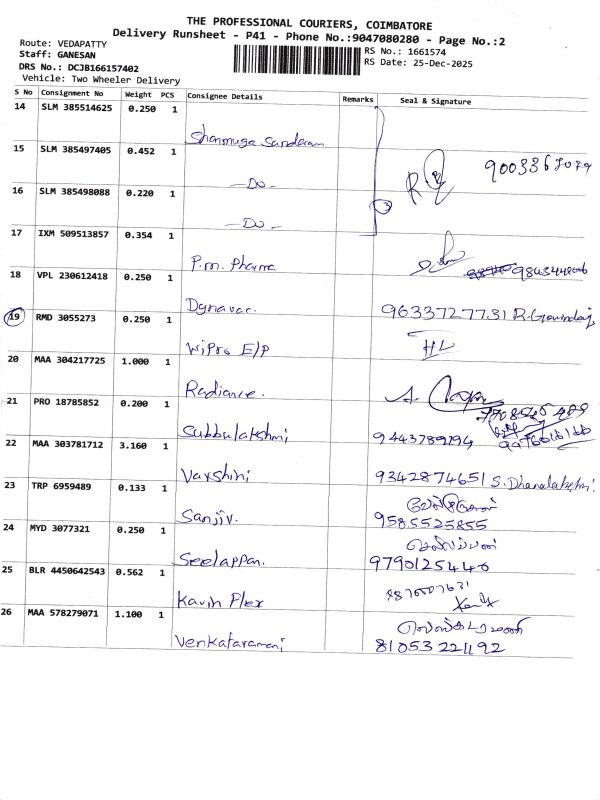 THE PROFESSIONAL COURIERS, COIMBATORE
Delivery Runsheet - P41 - Phone No.:9047080280 - Page No.:2
Route: VEDAPATTY
Staff: GANESAN
DRS No.: DCJB166157402
Vehicle: Two Wheeler Delivery
RS No.: 1661574
RS Date: 25-Dec-2025
S No Consignment No Weight PCS Consignee Details Remarks Seal & Signature
14 SLM 385514625 0.250 1
Shanmuga Sundaram
15 SLM 385497405 0.452 1
-Do- 9003367079
16 SLM 385498088 0.220 1
-Do-
17 IXM 509513857 0.354 1
P.m. Pharma
18 VPL 230612418 0.250 1
Dynavac. 9633727731 R.Govindaraj
19 RMD 3055273 0.250 1
Wipro E/P HL
20 MAA 304217725 1.000 1
Radiance.
21 PRO 18785852 0.200 1
Subbulakshmi 9443789194
22 MAA 303781712 3.160 1
Varshini 9342874651 S.Dhanalakshmi
23 TRP 6959489 0.133 1
Sanjiv. 9585525855
24 MYD 3077321 0.250 1
செல்லப்பன்
Seelappan. 9790125440
25 BLR 4450642543 0.562 1
Kavin Plex
26 MAA 578279071 1.100 1
வெங்கடரமணி
Venkataramani 81053221192